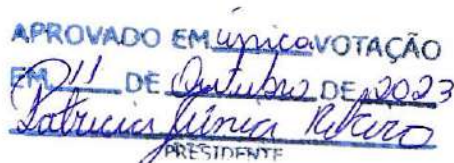 APROVADO EM única VOTAÇÃO
EM, 11 DE Outubro DE 2023
Patricia Júnia Ribeiro
PRESIDENTE